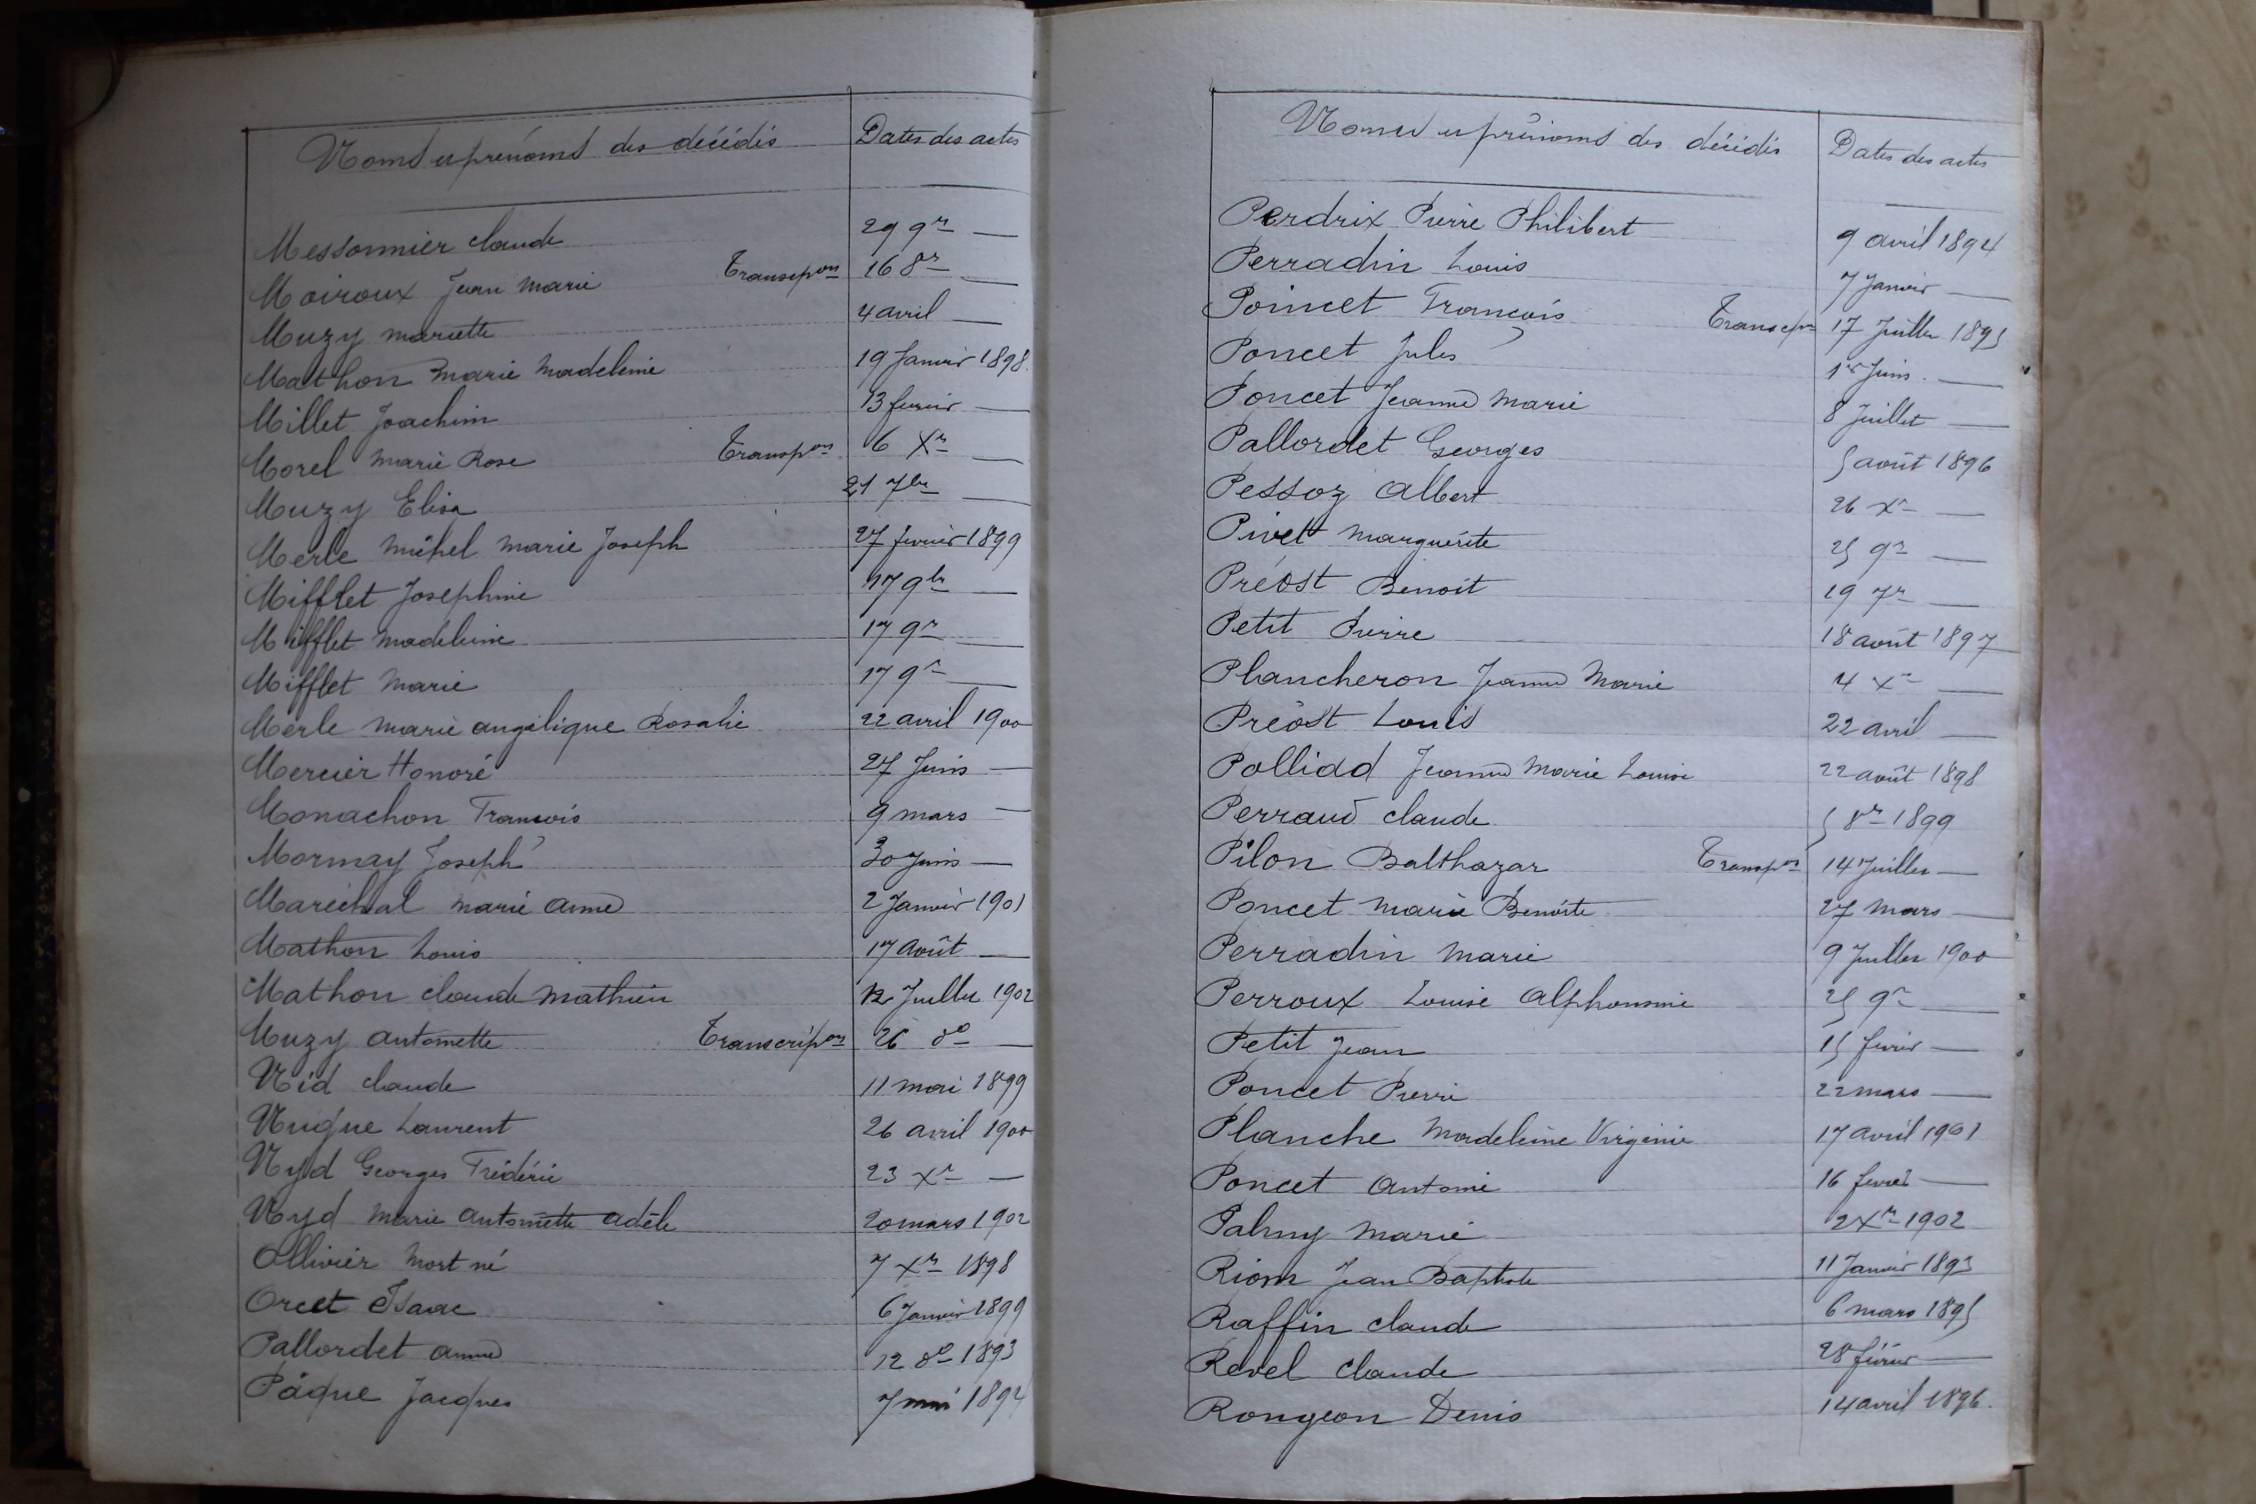 Noms et prénoms des décédés Dates des actes
Messonnier Claude 29 9re —
Moiroux Jean Marie Transcpon 16 8re —
Muzy Mariette 4 avril —
Mathon Marie Madeleine 19 Janvier 1898.
Millet Joachim 13 février —
Morel Marie Rose Transpon 6 Xre —
Muzy Elisa 21 7bre —
Merle Michel Marie Joseph 27 février 1899
Mifflet Joséphine 17 9bre —
Mifflet Madeleine 17 9re —
Mifflet Marie 17 9re —
Merle Marie Angélique Rosalie 22 avril 1900
Mercier Honoré 27 Juin —
Monachon François 9 mars —
Mormay Joseph 30 Juin —
Maréchal Marie Anne 2 Janvier 1901
Mathon Louis 17 Août —
Mathon Claude Mathieu 12 Juillet 1902
Muzy Antoinette Transcripon 26 8e —
Nid Claude 11 mai 1899
Nugue Laurent 26 avril 1900
Nyd Georges Frédéric 23 Xre —
Nyd Marie Antoinette Adèle 20 mars 1902
Ollivier Mort né 7 Xre 1898
Orcet Isaac 6 Janvier 1899
Pallordet Anne 12 8e 1893
Pâque Jacques 7 mai 1894
Noms et prénoms des décédés Dates des actes
Perdrix Pierre Philibert 9 avril 1894
Perradin Louis 7 Janvier —
Poincet François Transcpon 17 Juillet 1895
Poncet Jules 1er Juin. —
Poncet Jeanne Marie 8 Juillet —
Pallordet Georges 5 août 1896
Pessoz Albert 26 Xre —
Pivet Marguerite 25 9re —
Préost Benoît 19 7re —
Petit Pierre 18 août 1897
Plancheron Jeanne Marie 4 Xre —
Préost Louis 22 avril —
Polliad Jeanne Marie Louise 22 août 1898
Perraud Claude 5 8re 1899
Pilon Balthazar Transpon 14 Juillet —
Poncet Marie Benoîte 27 Mars —
Perradin Marie 9 Juillet 1900
Perroux Louise Alphonsine 25 9re —
Petit Jean 15 février —
Poncet Pierre 22 mars —
Planche Madeleine Virginie 17 avril 1901
Poncet Antoine 16 fevrier —
Palmy Marie 2 Xre 1902
Riom Jean Baptiste 11 Janvier 1893
Raffin Claude 6 mars 1895
Revel Claude 28 février —
Rongeon Denis 14 avril 1896.